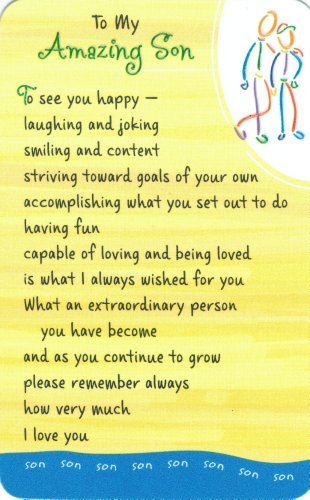 To My
Amazing Son
To see you happy —
laughing and joking
smiling and content
striving toward goals of your own
accomplishing what you set out to do
having fun
capable of loving and being loved
is what I always wished for you
What an extraordinary person
you have become
and as you continue to grow
please remember always
how very much
I love you
son son son son son son son son